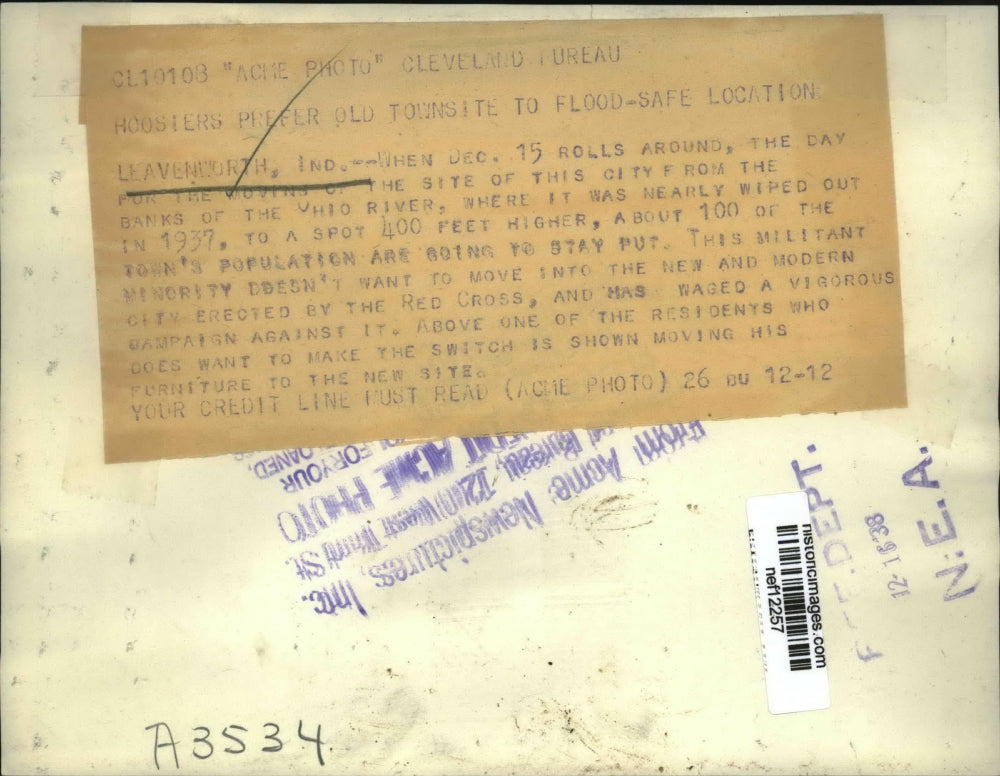 CL10108 "ACME PHOTO" CLEVELAND BUREAU
HOOSIERS PREFER OLD TOWNSITE TO FLOOD-SAFE LOCATION
LEAVENWORTH, IND.--WHEN DEC. 15 ROLLS AROUND, THE DAY
FOR THE MOVING OF THE SITE OF THIS CITY FROM THE
BANKS OF THE OHIO RIVER, WHERE IT WAS NEARLY WIPED OUT
IN 1937, TO A SPOT 400 FEET HIGHER, ABOUT 100 OF THE
TOWN'S POPULATION ARE GOING TO STAY PUT. THIS MILITANT
MINORITY DOESN'T WANT TO MOVE INTO THE NEW AND MODERN
CITY ERECTED BY THE RED CROSS, AND HAS WAGED A VIGOROUS
CAMPAIGN AGAINST IT. ABOVE ONE OF THE RESIDENTS WHO
DOES WANT TO MAKE THE SWITCH IS SHOWN MOVING HIS
FURNITURE TO THE NEW SITE.
YOUR CREDIT LINE MUST READ (ACME PHOTO) 26 BU 12-12
From Acme Newspictures, Inc.
Bureau, 1200 West Third St.
ACME PHOTO
FOR YOUR
LOANED,
DEPT.
12-16'38
N.E.A.
historicimages.com
nef12257
A3534